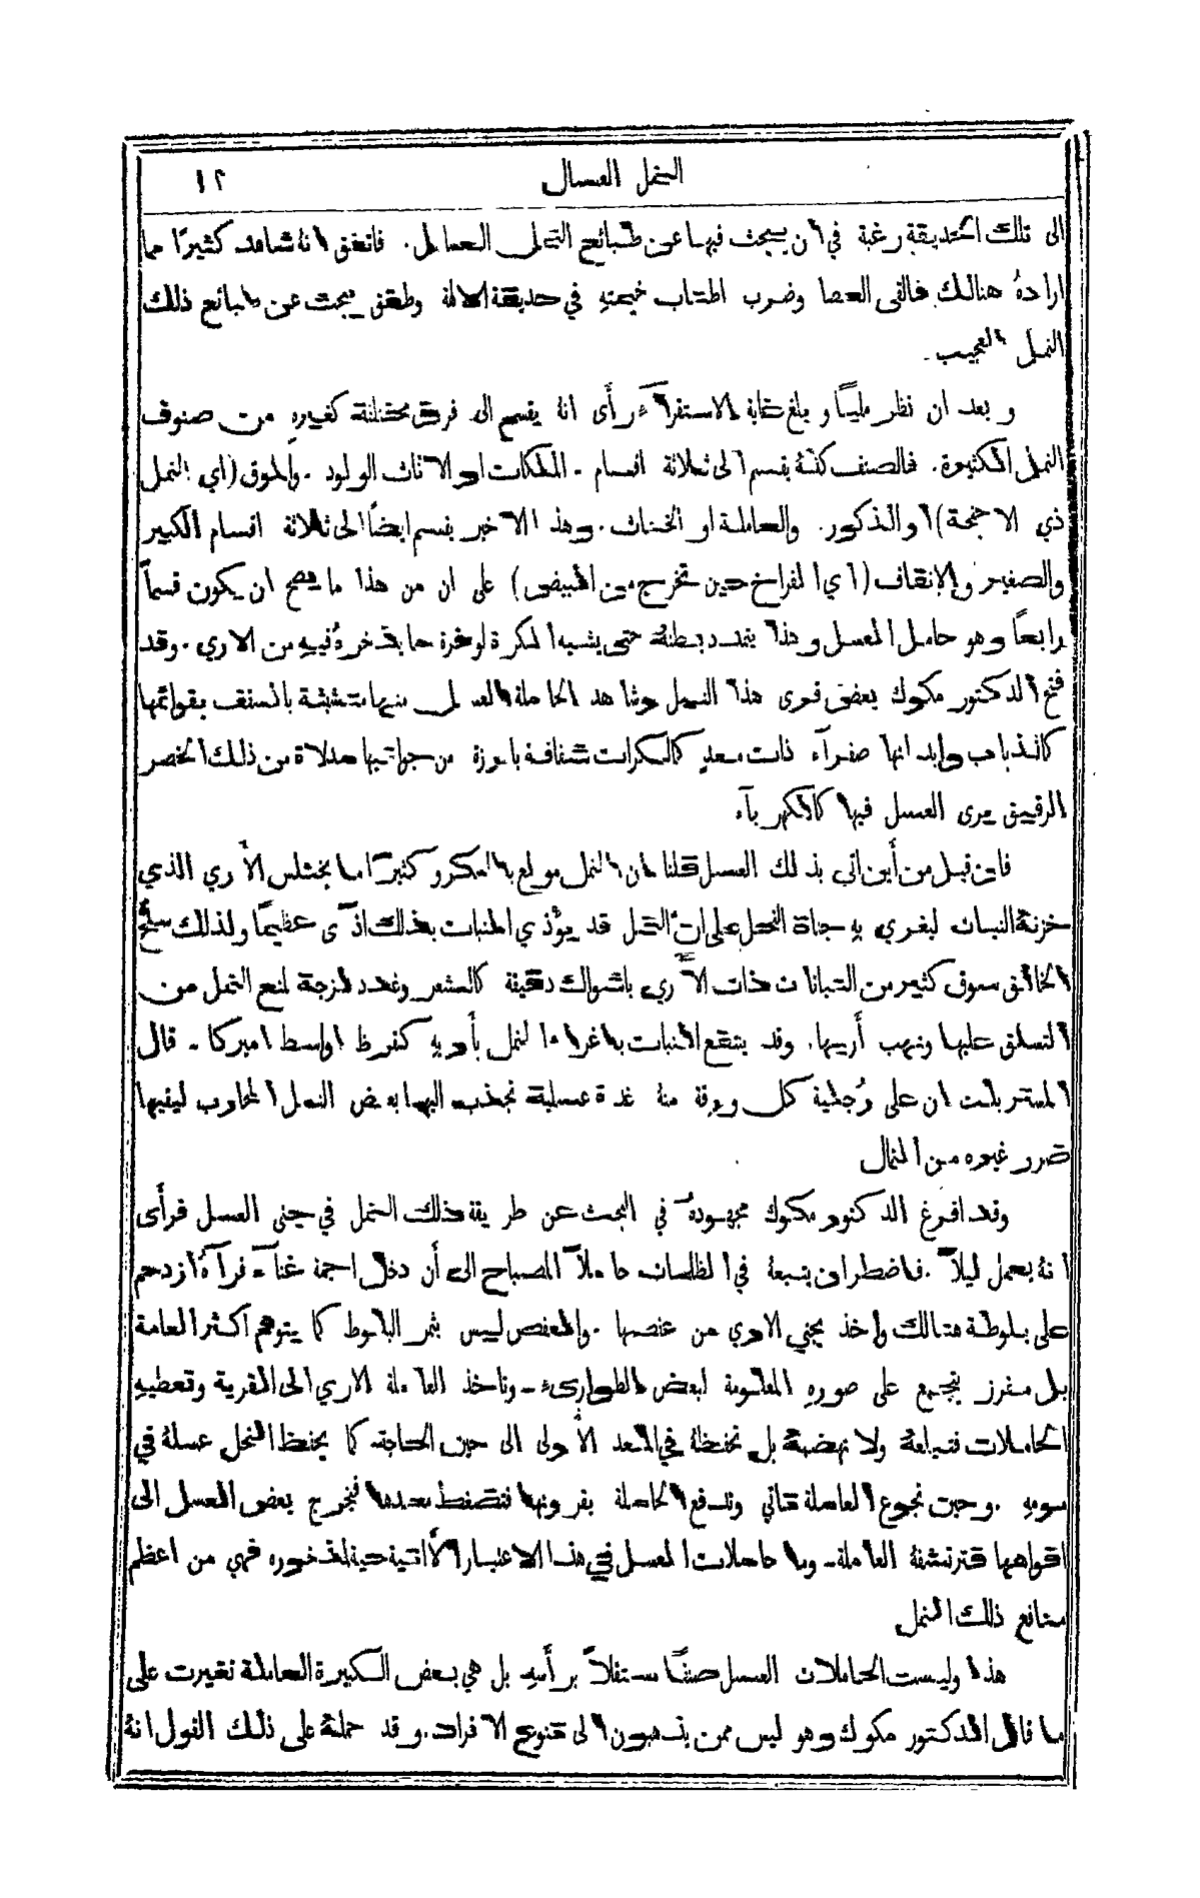 النمل العسال
٢١
الى تلك الحديقة رغبة في ان يبحث فيها عن طبائع النمل العسال. فاتفق انهُ شاهد كثيرًا مما
ارادهُ هنالك فالقى العصا وضرب اطناب خيمتهِ في حديقة الالهة وطفق يبحث عن طبائع ذلك
النمل العجيب.
وبعد ان نظر مليًا وبلغ غاية الاستقرآء رأى انهُ يقسم الى فرق مختلفة كغيرهِ من صنوف
النمل الكثيرة. فالصنف كلهُ يقسم الى ثلاثة اقسام. الملكات او الاناث الولود. والموق (اي النمل
ذي الاجنحة) او الذكور. والعاملة او الخناث. وهذا الاخير يقسم ايضًا الى ثلاثة اقسام الكبير
والصغير والانقاف (اي الفراخ حين تخرج من البيض) على ان من هذا ما يصح ان يكون قسماً
رابعاً وهو حامل العسل وهذا يتمدد بطنهُ حتى يشبه الكرة لوفرة ما يدخرهُ فيهِ من الاري. وقد
فتح الدكتور مكوك بعض قرى هذا النمل وشاهد الحاملة العسل منها متشبثة بالسقف بقوائمها
كالذباب وابدانها صفرآء ذات معدٍ كالكرات شفافة بارزة من جوانبها مدلاة من ذلك الخصر
الرقيق يرى العسل فيها كالكهربآء
فان قيل من أين اتى بذلك العسل قلنا ان النمل مولع بالسكر وكثيرًا ما يختلس الأري الذي
خزنهُ النبات ليغري بهِ جناة النحل على ان النمل قد يؤذي النبات بذلك اذًى عظيمًا ولذلك سلَّح
الخالق سوق كثير من النباتات ذات الأري باشواك دقيقة كالشعر وغدد لزجة لمنع النمل من
التسلق عليها ونهب أريها. وقد ينتفع النبات باغراء النمل بأريهِ كقرظ اواسط اميركا. قال
المستر بلت ان على رُجلية كل ورقة منهُ غدة عسلية تجذب اليها بعض النمل المحارب ليقيها
ضرر غيره من النمال
وقد افرغ الدكتور مكوك مجهودهُ في البحث عن طريقة ذلك النمل في جني العسل فرأى
انهُ يعمل ليلاً. فاضطر ان يتبعهُ في الظلمات حاملاً المصباح الى أن دخل اجمة غنآء فرآهُ ازدحم
على بلوطة هنالك واخذ يجني الاري من عفصها. والعفص ليس بثمر البلوط كما يتوهم اكثر العامة
بل مفرز يتجمع على صورهِ المعلومة لبعض الطوارئ. وتاخذ العاملة الاري الى القرية وتعطيهِ
الحاملات فتبلعهُ ولا تهضمهُ بل تحفظهُ في المعد الأولى الى حين الحاجة كما يحفظ النحل عسلهُ في
مومهِ. وحين تجوع العاملة تاتي وتدفع الحاملة بقرونها فتضغط معدها فيخرج بعض العسل الى
افواهها فترتشفهُ العاملة. وما حاملات العسل في هذا الاعتبار الا آنية حية لمذخوره فهي من اعظم
منافع ذلك النمل
هذا وليست الحاملات العسل صنفًا مستقلاً برأسهِ بل هي بعض الكبيرة العاملة تغيرت على
ما قال الدكتور مكوك وهو ليس ممن يذهبون الى تنوع الافراد. وقد حملهُ على ذلك القول انهُ